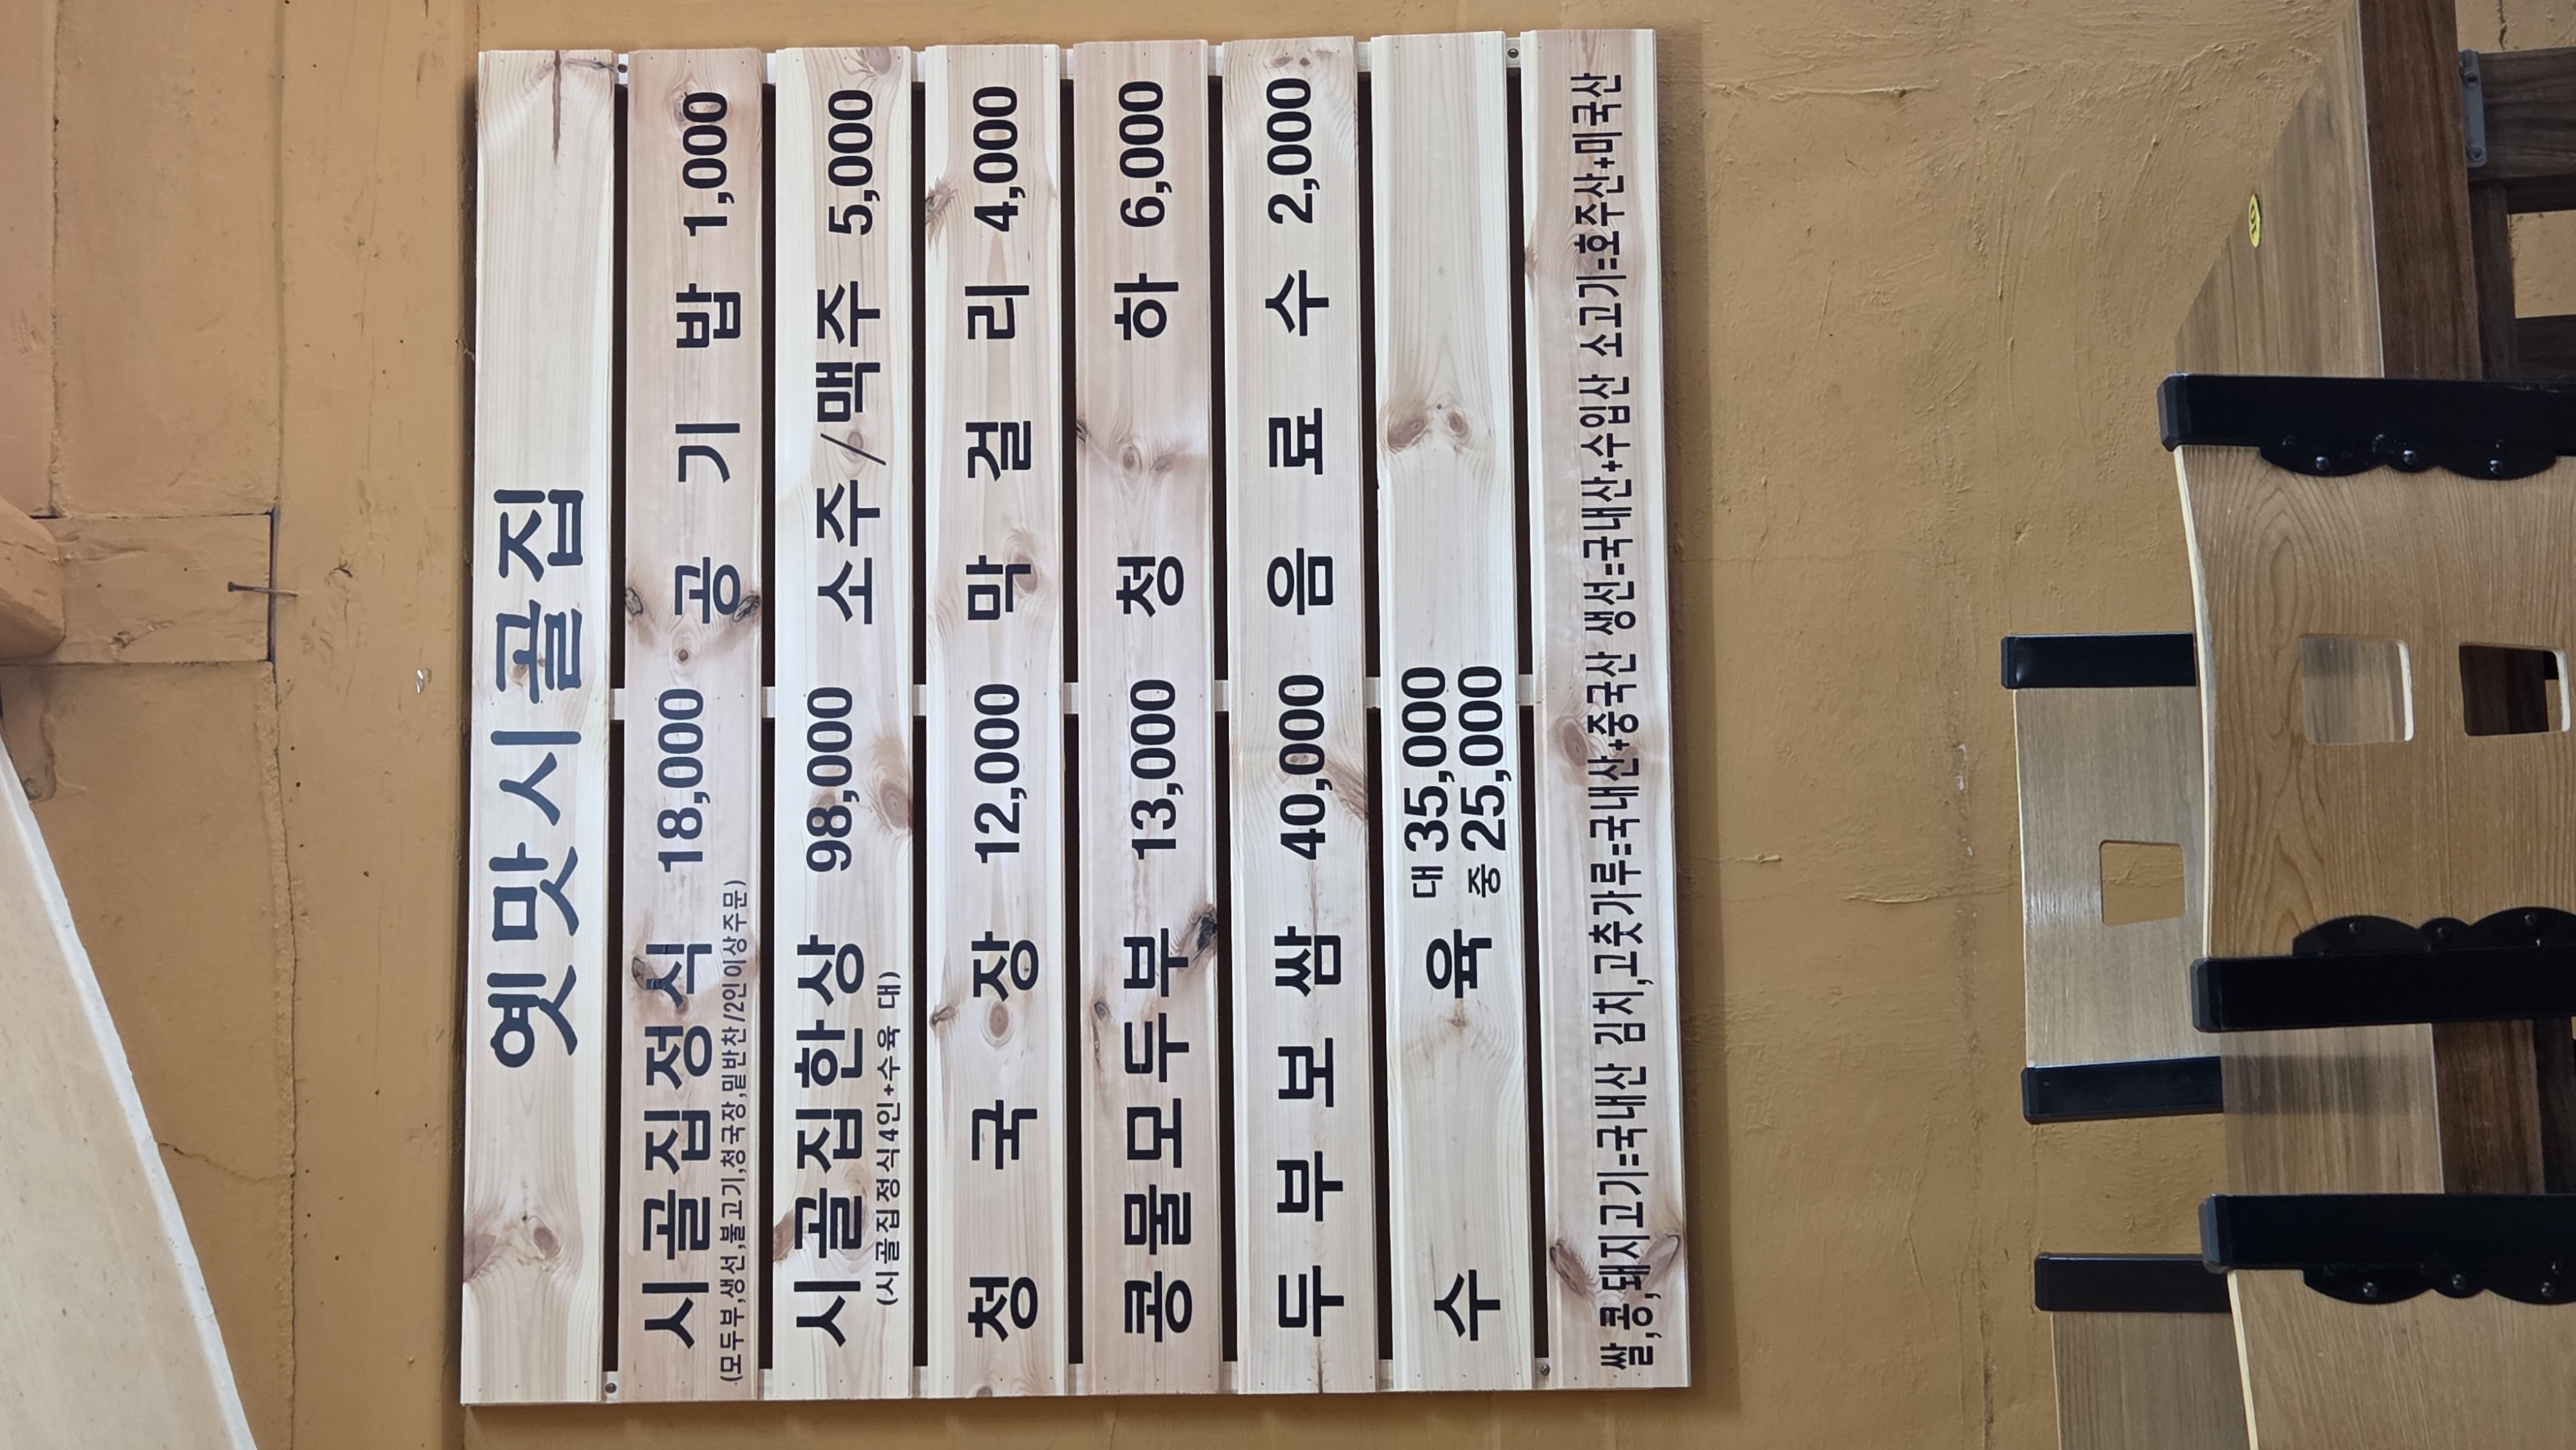 옛맛시골집
시골집정식 18,000 공 기 밥 1,000
(모두부,생선,불고기,청국장,밑반찬/2인이상주문)
시골집한상 98,000 소주/맥주 5,000
(시골집정식4인+수육 대)
청 국 장 12,000 막 걸 리 4,000
콩물모두부 13,000 청 하 6,000
두부보쌈 40,000 음 료 수 2,000
수 육 대 35,000
중 25,000
쌀,콩,돼지고기=국내산 김치,고춧가루=국내산+중국산 생선=국내산+수입산 소고기=호주산+미국산